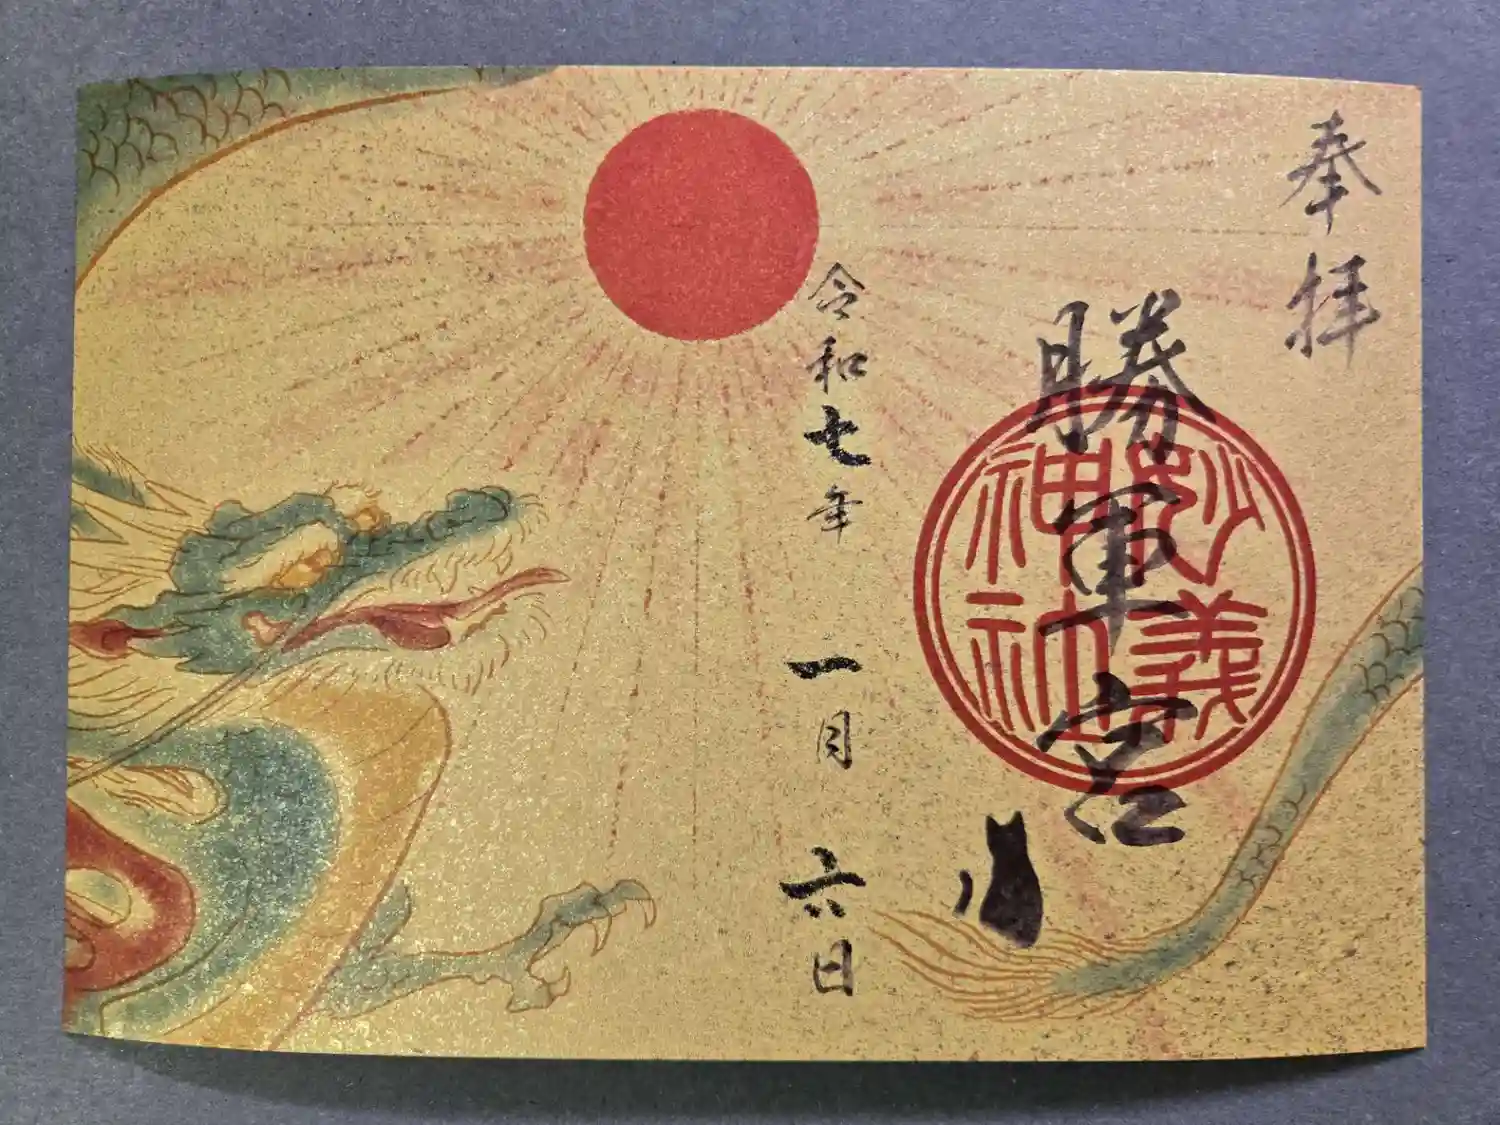 奉拝
勝軍宮
妙義
神社
令和七年 一月 六日